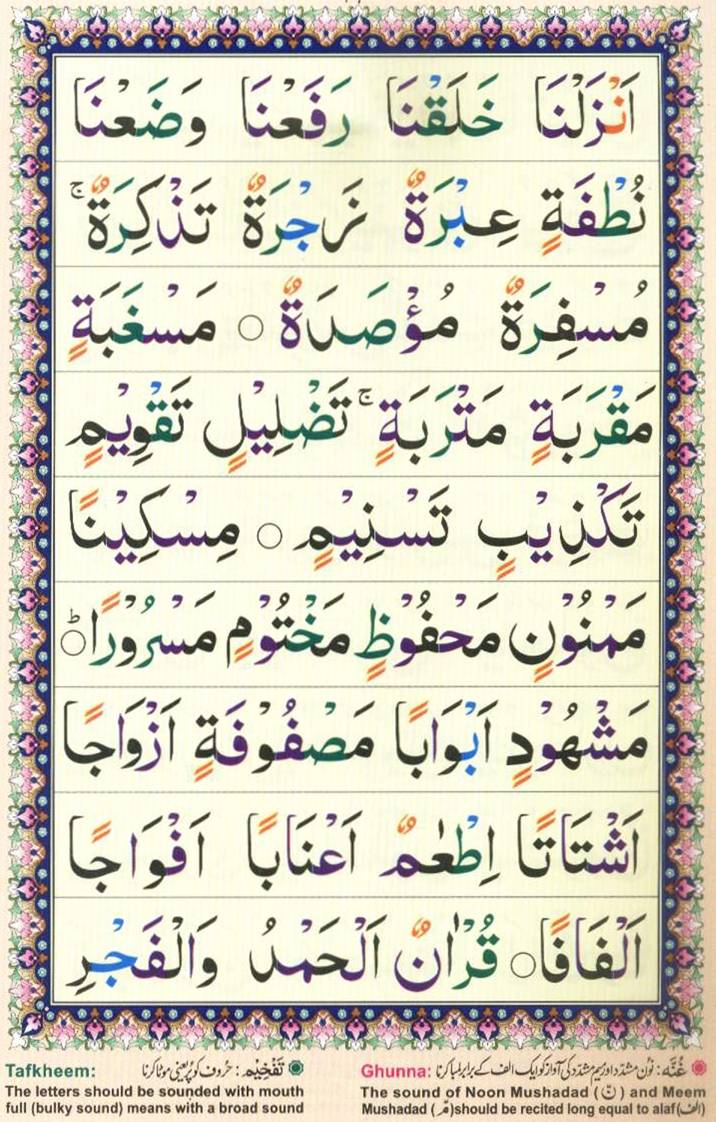 اَنْزَلْنَا خَلَقْنَا رَفَعْنَا وَضَعْنَا
نُطْفَةٍ عِبْرَةٌ نَجْرَةٌ تَذْكِرَةٌ ۚ
مُسْفِرَةٌ مُؤْصَدَةٌ ○ مَسْغَبَةٍ
مَقْرَبَةٍ مَتْرَبَةٍ ۚ تَضْلِيْلٍ تَقْوِيْمٍ
تَكْذِيْبٍ تَسْنِيْمٍ ○ مِسْكِيْنًا
مَمْنُوْنٍ مَحْفُوْظٍ مَخْتُوْمٍ مَسْرُوْرًا ○ؕ
مَشْهُوْدٍ اَبْوَابًا مَصْفُوْفَةٍ اَزْوَاجًا
اَشْتَاتًا اِطْعٰمٌ اَعْنَابًا اَفْوَاجًا
اَلْفَافًا ○ قُرْاٰنٌ اَلْحَمْدُ وَالْفَجْرِ
غُنَّه: نون مشدّد اور میم مشدّد کی آواز کو ایک الف کے برابر لمبا کرنا
Ghunna:
The sound of Noon Mushadad (نّ) and Meem
Mushadad (مّ)should be recited long equal to alaf(الف)
تَفْخِيْم: حُروف کو پُر یعنی موٹا کرنا
Tafkheem:
The letters should be sounded with mouth
full (bulky sound) means with a broad sound